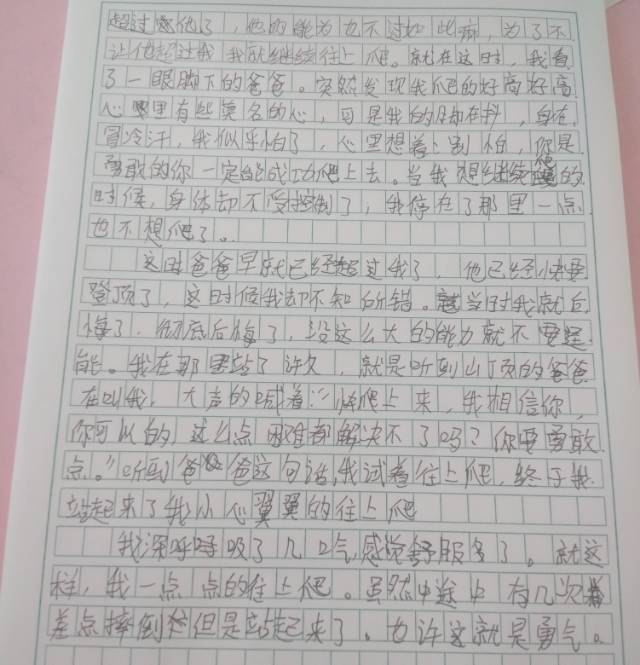 超过他了，他的能力也不过如此嘛，为了不
让他超过我我就继续往上爬。就在这时，我看
了一眼脚下的爸爸。突然发现我爬的好高好高
心里有些莫名的心，可是我的却在抖，身在
冒冷汗，我似乎怕了，心里想着别怕，你是
勇敢的你一定能成功爬上去。当我想继续的
时候，身体却不受控制了，我停在了那里一点
也不想爬了。
这时爸爸早就已经超过我了，他已经快要
登顶了，这时候我却不知所错。当时我就后
悔了，彻底后悔了，没这么大的能力就不要逞
能。我在那里站了许久，就是听到山顶的爸爸
在叫我，大声的喊着：“快爬上来，我相信你，
你可以的，这么点困难都解决不了吗？你要勇敢
点。”听到爸爸这句话，我试着往上爬，终于我
站起来了我小心翼翼的往上爬
我深呼呼吸了几口气，感觉舒服多了。就这
样，我一点点的往上爬。虽然中途中有几次
差点摔倒但是站起来了。也许这就是勇气。